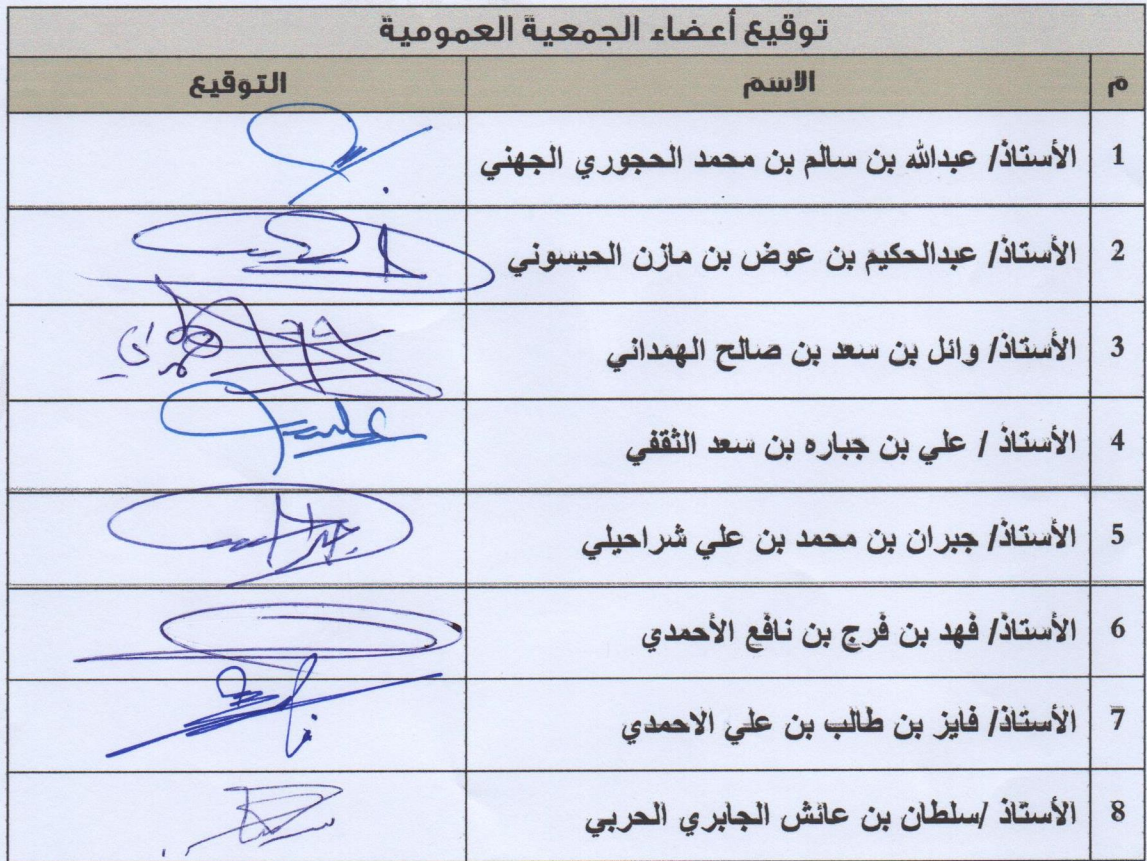 توقيع أعضاء الجمعية العمومية
م الاسم التوقيع
1 الأستاذ/ عبدالله بن سالم بن محمد الحجوري الجهني
2 الأستاذ/ عبدالحكيم بن عوض بن مازن الحيسوني
3 الأستاذ/ وائل بن سعد بن صالح الهمداني
4 الأستاذ / علي بن جباره بن سعد الثقفي
5 الأستاذ/ جبران بن محمد بن علي شراحيلي
6 الأستاذ/ فهد بن فرج بن نافع الأحمدي
7 الأستاذ/ فايز بن طالب بن علي الاحمدي
8 الأستاذ /سلطان بن عائش الجابري الحربي